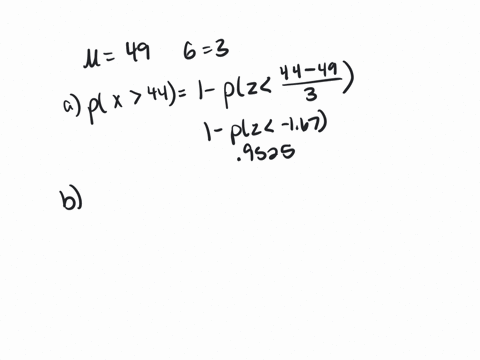 μ = 49 6 = 3
a) p(x > 44) = 1 - p(z < (44-49)/3)
1 - p(z < -1.67)
.9525
b)